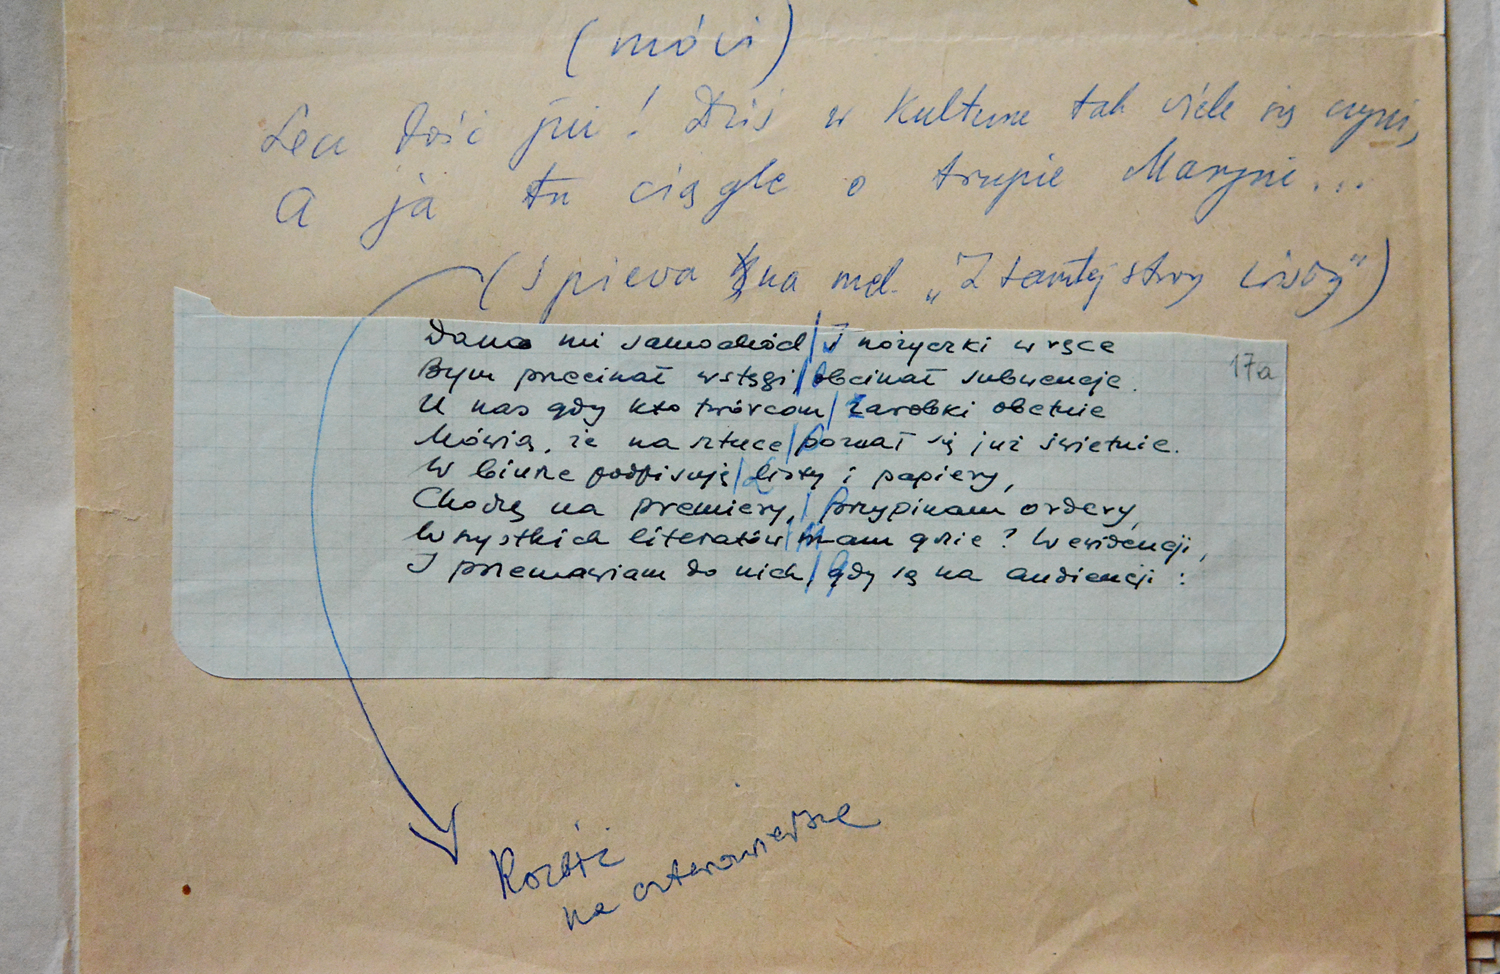 (mówi)
Lecz dość już! Dziś w kulturze tak wiele się czyni,
A ja tu ciągle o trupie Maryni...
(śpiewa na mel. "Z tamtej strony Wisły")
Dano mi samochód / I nożyczki w ręce
17a
Bym przecinał wstęgi / Obcinał subwencje.
U nas gdy kto twórcom / Zarobki obetnie
Mówią, że na sztuce / poznał się już świetnie.
W biurze podpisuję / Listy i papiery,
Chodzę na premiery, / Przypinam ordery,
Wszystkich literatów / Mam gdzie? W ewidencji,
I przemawiam do nich / gdy są na audiencji:
Rozbić
na czterowiersze